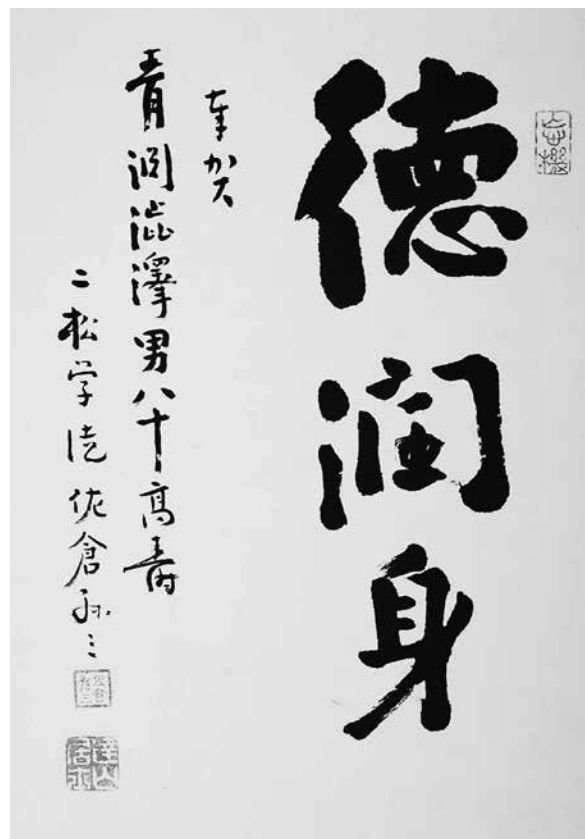 德潤身
奉賀
青淵澁澤男八十高壽
二松学徒佐倉孫三